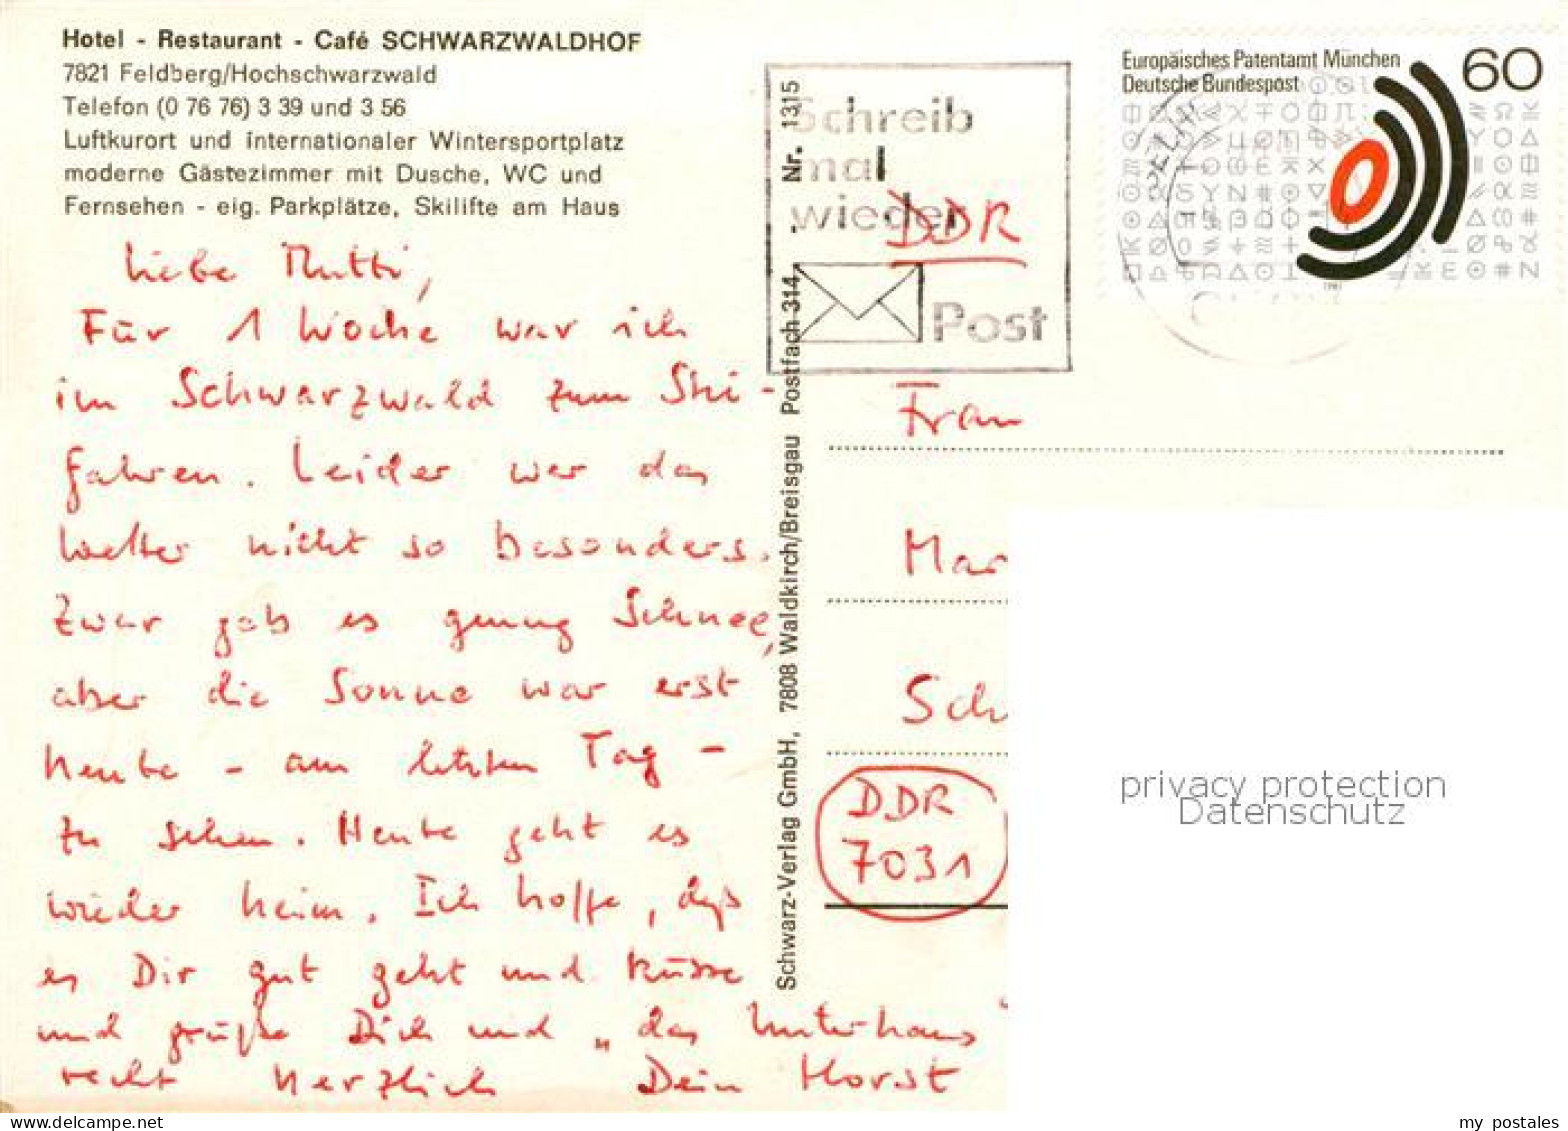 Hotel - Restaurant - Café SCHWARZWALDHOF
7821 Feldberg/Hochschwarzwald
Telefon (0 76 76) 3 39 und 3 56
Luftkurort und internationaler Wintersportplatz
moderne Gästezimmer mit Dusche, WC und
Fernsehen - eig. Parkplätze, Skilifte am Haus
Liebe Mutti,
Für 1 Woche war ich
im Schwarzwald zum Ski-
fahren. Leider war das
Wetter nicht so besonders.
Zwar gab es genug Schnee,
aber die Sonne war erst
heute - am letzten Tag -
zu sehen. Heute geht es
wieder heim. Ich hoffe, daß
es Dir gut geht und küsse
und grüße Dich und „das Unterhaus"
recht herzlich Dein Horst
Schwarz-Verlag GmbH, 7808 Waldkirch/Breisgau Postfach 314 - Nr. 1315
Schreib
mal
wieder
Post
DDR
Europäisches Patentamt München
Deutsche Bundespost
60
1981
Frau
Mar
Sch
DDR
7031
privacy protection
Datenschutz
my postales